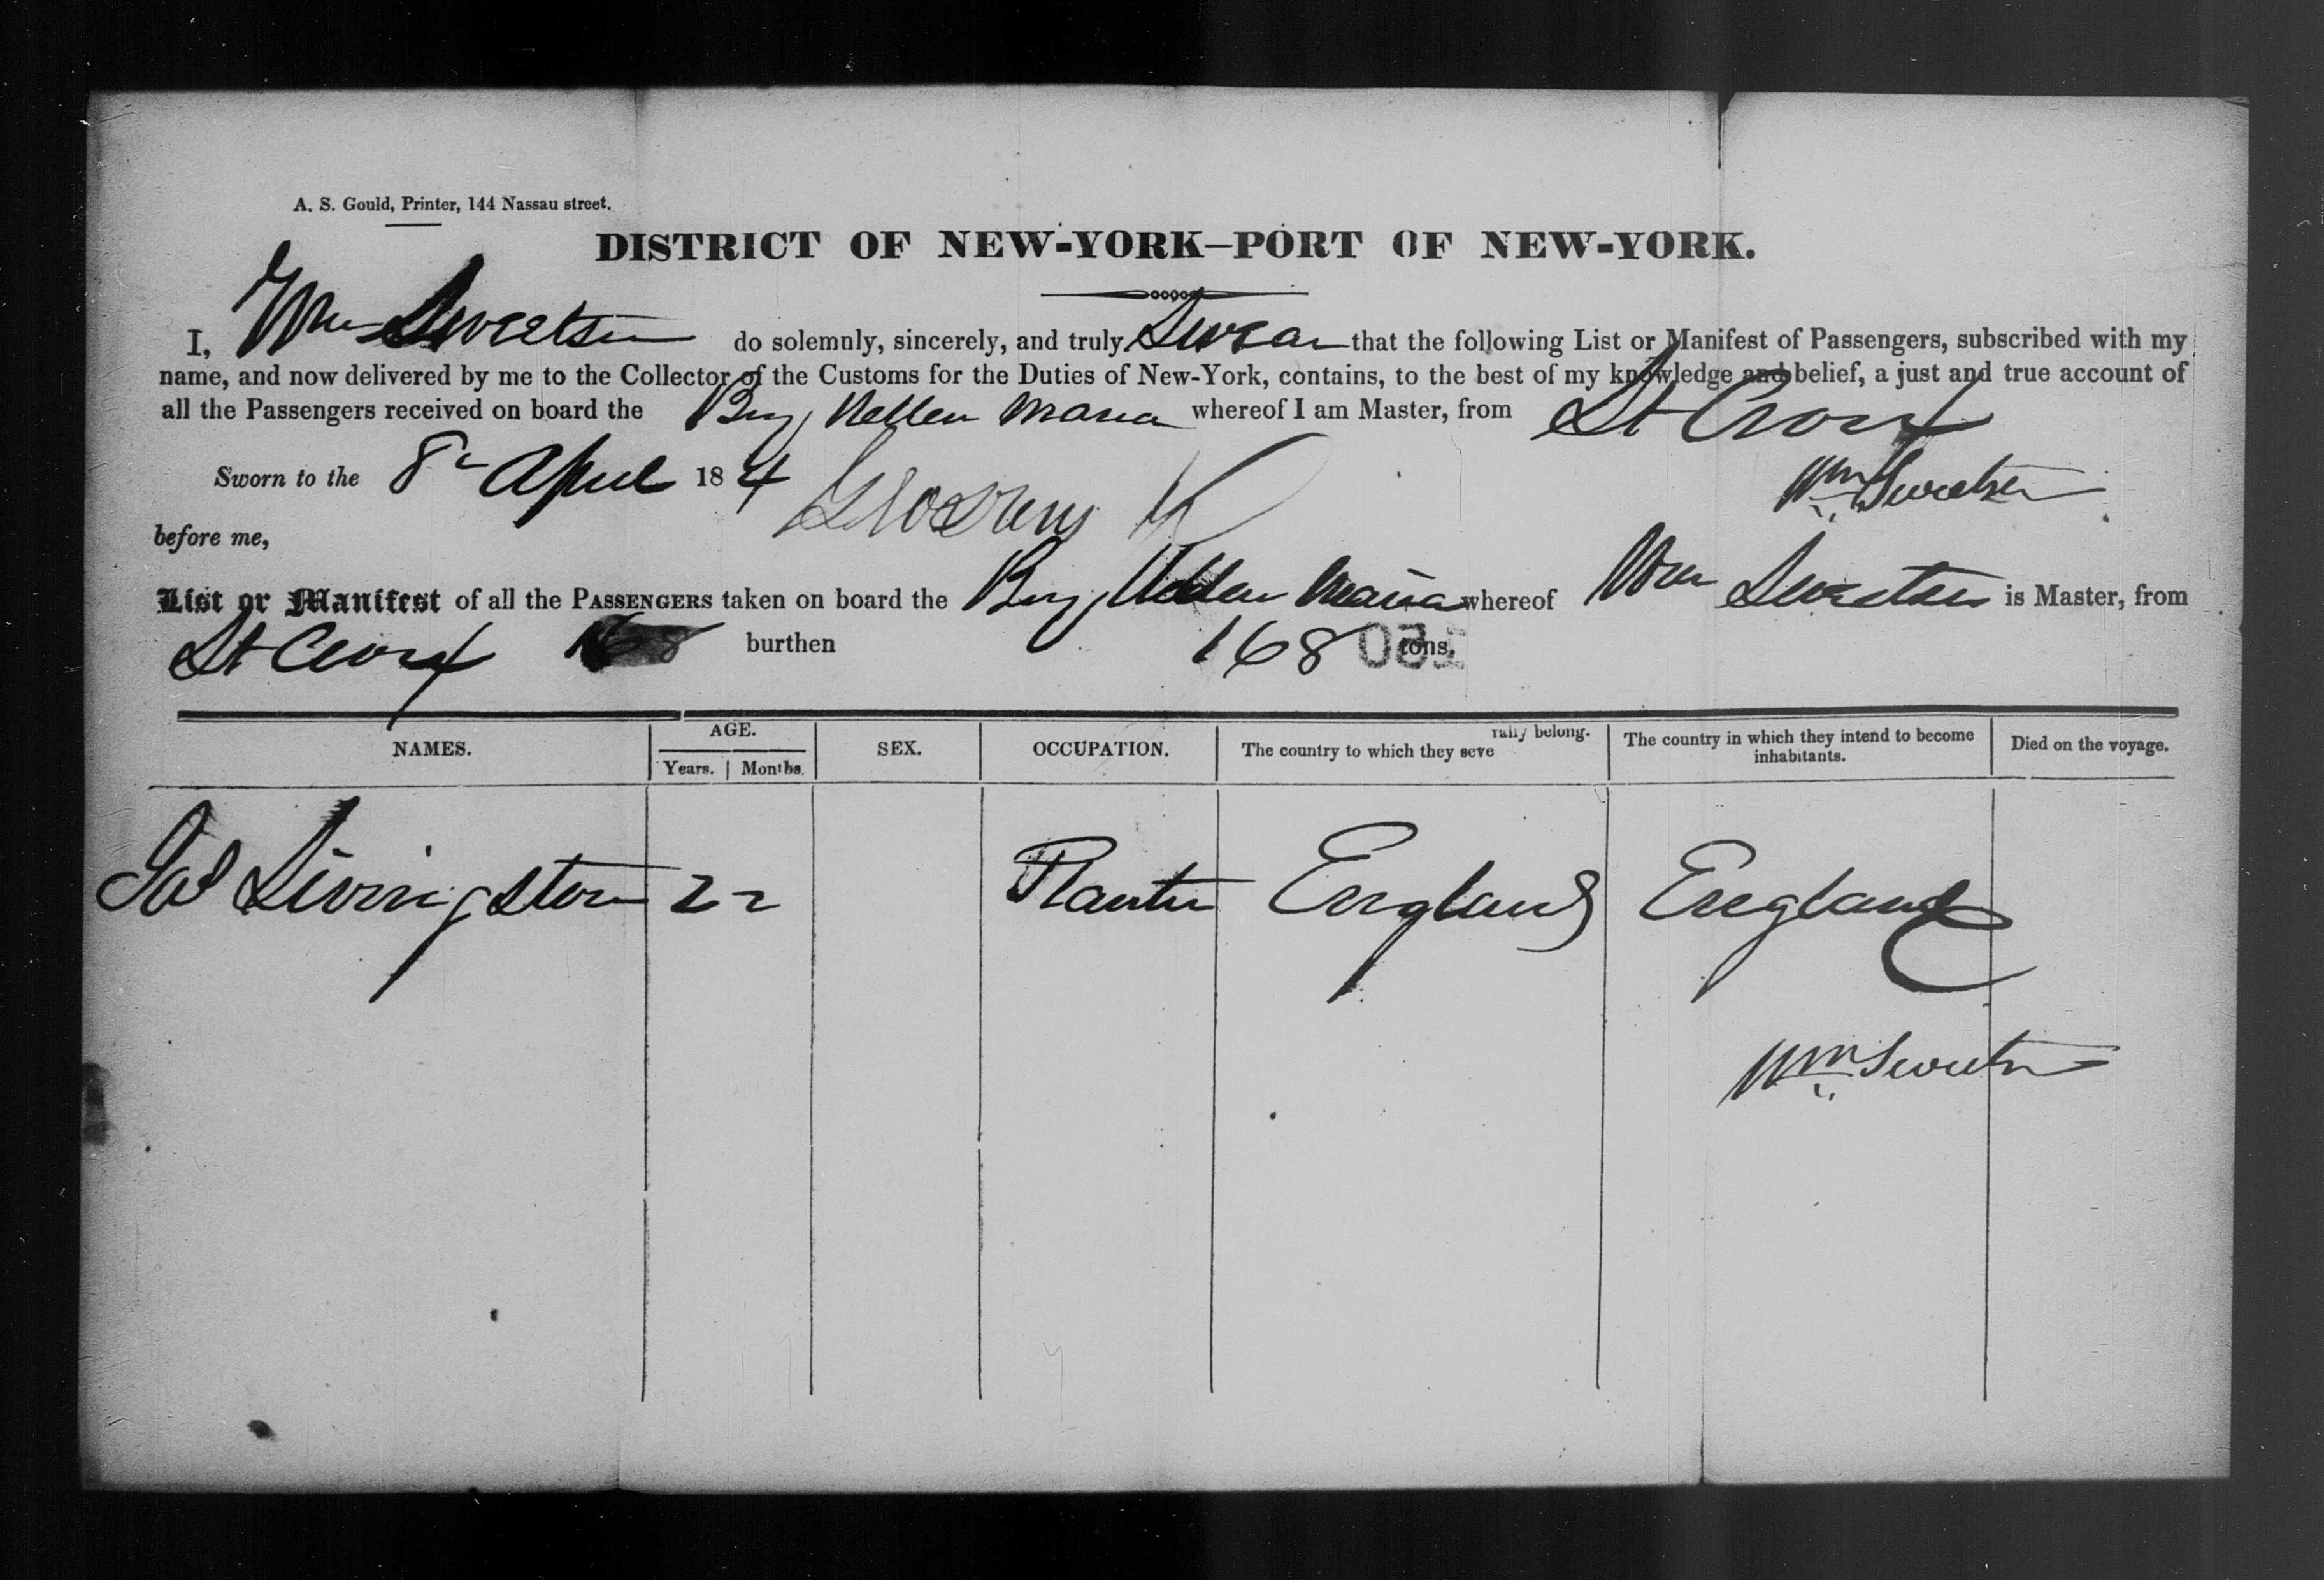 A. S. Gould, Printer, 144 Nassau street.
DISTRICT OF NEW-YORK—PORT OF NEW-YORK.
I, Wm Sweetser do solemnly, sincerely, and truly Swear that the following List or Manifest of Passengers, subscribed with my
name, and now delivered by me to the Collector of the Customs for the Duties of New-York, contains, to the best of my knowledge and belief, a just and true account of
all the Passengers received on board the Brig Hellen Maria whereof I am Master, from St Croix
Sworn to the 8 April 184
Wm Sweetser
before me,
List or Manifest of all the PASSENGERS taken on board the Brig Hellen Maria whereof Wm Sweetser is Master, from
St Croix burthen 168 tons.
NAMES. AGE. Years. Months. SEX. OCCUPATION. The country to which they severally belong. The country in which they intend to become inhabitants. Died on the voyage.
Jas Livingston 22 Planter England England
Wm Sweetser